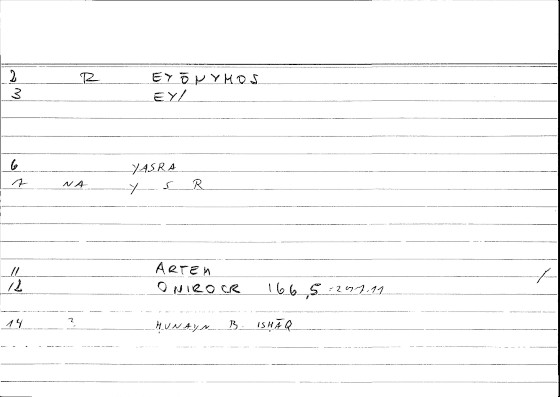 2 R EYŌNYMOS
3 EY/
6 YASRA
7 NA Y S R
11 ARTEM
12 ONIROCR 166,5 = 291.11
14 ? ḤUNAYN B. ISḤĀQ